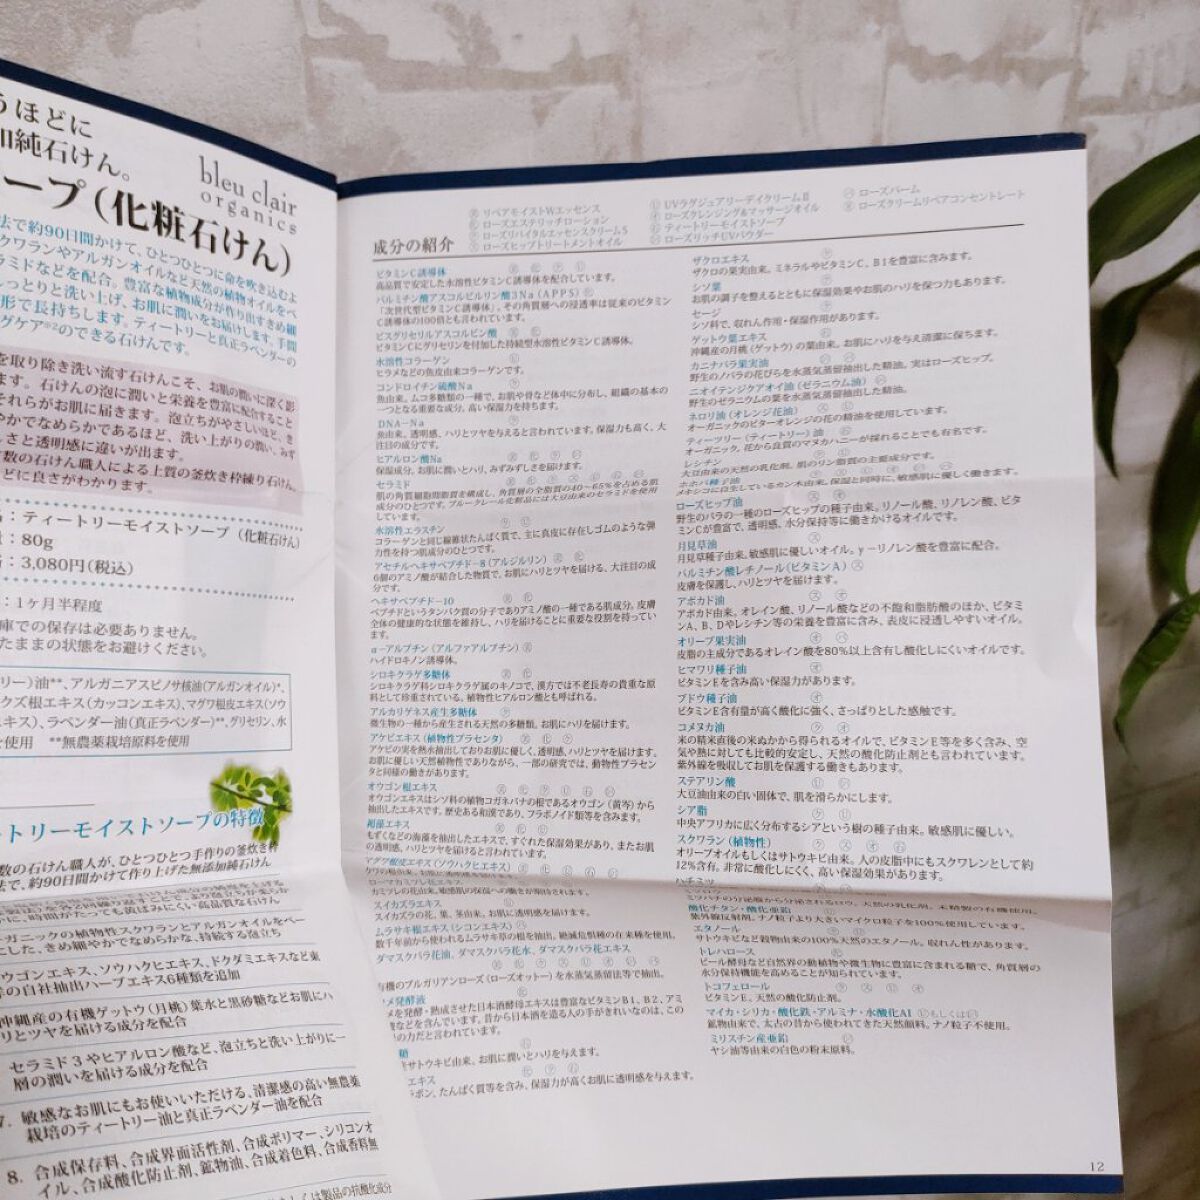 うほどに
加純石けん。
bleu clair
organics
ープ（化粧石けん）
法で約90日間かけて、ひとつひとつに命を吹き込むよ
クワランやアルガンオイルなど天然の植物オイルをベ
ラミドなどを配合。豊富な植物成分が作り出すきめ細
しっとりと洗い上げ、お肌に潤いをお届けします。手間
形で長持ちします。ティートリーと真正ラベンダーの
グケア※2のできる石けんです。
を取り除き洗い流す石けんこそ、お肌の潤いに深く影
ます。石けんの泡に潤いと栄養を豊富に配合すること
それらがお肌に届きます。泡立ちがやさしいほど、き
やかでなめらかであるほど、洗い上がりの潤い、みず
さと透明感に違いが出ます。
数の石けん職人による上質の釜炊き枠練り石けん。
どに良さがわかります。
：ティートリーモイストソープ（化粧石けん）
：80g
：3,080円（税込）
：1ヶ月半程度
庫での保存は必要ありません。
たままの状態をお避けください。
リー）油**、アルガニアスピノサ核油（アルガンオイル）*、
クズ根エキス（カッコンエキス）、マグワ根皮エキス（ソウ
キス）、ラベンダー油（真正ラベンダー）**、グリセリン、水
を使用　**無農薬栽培原料を使用
ートリーモイストソープの特徴
数の石けん職人が、ひとつひとつ手作りの釜炊き枠
法で、約90日間かけて作り上げた無添加純石けん
に、時間がたっても黄ばみにくい高品質な石けん
ーガニックの植物性スクワランとアルガンオイルをベー
にした、きめ細やかでなめらかな、持続する泡立ち
ウゴンエキス、ソウハクヒエキス、ドクダミエキスなど東
等の自社抽出ハーブエキス6種類を追加
沖縄産の有機ゲットウ（月桃）葉水と黒砂糖などお肌にハ
リとツヤを届ける成分を配合
セラミド3やヒアルロン酸など、泡立ちと洗い上がりに一
層の潤いを届ける成分を配合
7. 敏感なお肌にもお使いいただける、清潔感の高い無農薬
栽培のティートリー油と真正ラベンダー油を配合
8. 合成保存料、合成界面活性剤、合成ポリマー、シリコンオ
イル、合成酸化防止剤、鉱物油、合成着色料、合成香料無
は製品の抗酸化成分
成分の紹介
リペアモイストWエッセンス
ローズエステリッチローション
ローズリバイタルエッセンスクリームS
ローズヒップトリートメントオイル
UVラグジュアリーデイクリームⅡ
ローズクレンジング&マッサージオイル
ティートリーモイストソープ
ローズリッチUVパウダー
ローズバーム
ローズクリームリペアコンセントレート
ビタミンC誘導体
高品質で安定した水溶性ビタミンC誘導体を配合しています。
パルミチン酸アスコルビルリン酸3Na（APPS）
「次世代型ビタミンC誘導体」。その角質層への浸透率は従来のビタミン
C誘導体の100倍とも言われています。
ビスグリセリルアスコルビン酸
ビタミンCにグリセリンを付加した持続型水溶性ビタミンC誘導体。
水溶性コラーゲン
ヒラメなどの魚皮由来コラーゲンです。
コンドロイチン硫酸Na
魚由来。ムコ多糖類の一種で、お肌や骨など体中に分布し、組織の基本の
一つとなる重要な成分。高い保湿力を持ちます。
DNA-Na
魚由来。透明感、ハリとツヤを与えると言われています。保湿力も高く、大
注目の成分です。
ヒアルロン酸Na
保湿成分。お肌に潤いとハリ、みずみずしさを届けます。
セラミド
肌の角質細胞間脂質を構成し、角質層の全脂質の40～65%を占める肌
成分のひとつです。ブルークレール化粧品には大豆由来のセラミドを使用
しています。
水溶性エラスチン
コラーゲンと同じ線維状たんぱく質で、主に真皮に存在しゴムのような弾
力性を持つ肌成分のひとつです。
アセチルヘキサペプチド-8（アルジルリン）
6個のアミノ酸が結合した物質で、お肌にハリとツヤを届ける、大注目の成
分です。
ヘキサペプチド-10
ペプチドというタンパク質の分子でありアミノ酸の一種である肌成分。皮膚
全体の健康的な状態を維持し、ハリを届けることに重要な役割を持ってい
ます。
α-アルブチン（アルファアルブチン）
ハイドロキノン誘導体。
シロキクラゲ多糖体
シロキクラゲ科シロキクラゲ属のキノコで、漢方では不老長寿の貴重な原
料として珍重されている。植物性ヒアルロン酸とも呼ばれる。
アルカリゲネス産生多糖体
微生物の一種から産生される天然の多糖類。お肌にハリを届けます。
アケビエキス（植物性プラセンタ）
アケビの実を熱水抽出しておりお肌に優しく、透明感、ハリとツヤを届けます。
お肌に優しい天然植物性でありながら、一部の研究では、動物性プラセン
タと同様の働きがあります。
オウゴン根エキス
オウゴンエキスはシソ科の植物コガネバナの根であるオウゴン（黄芩）から
抽出したエキスです。歴史ある和漢であり、フラボノイド類等を含みます。
褐藻エキス
もずくなどの海藻を抽出したエキスで、すぐれた保湿効果があり、またお肌
の透明感、ハリとツヤを届けると言われています。
マグワ根皮エキス（ソウハクヒエキス）
ローマカミツレ花エキス
カミツレの花由来。敏感肌の保湿への働きが期待されます。
スイカズラエキス
スイカズラの花、葉、茎由来。お肌に透明感を届けます。
ムラサキ根エキス（シコンエキス）
数千年前から使われるムラサキ草の根を抽出。絶滅危惧種の在来種を使用。
ダマスクバラ花油、ダマスクバラ花水、ダマスクバラ花エキス
有機のブルガリアンローズ（ローズオットー）を水蒸気蒸留法等で抽出。
コメ発酵液
メを発酵・熟成させた日本酒酵母エキスは豊富なビタミンB1、B2、アミ
酸などを含んでいます。昔から日本酒を造る人の手がきれいなのは、この
の力だと言われています。
糖
サトウキビ由来、お肌に潤いとハリを与えます。
エキス
ラボン、たんぱく質等を含み、保湿力が高くお肌に透明感を与えます。
ザクロエキス
ザクロの果実由来。ミネラルやビタミンC、B1を豊富に含みます。
シソ葉
お肌の調子を整えるとともに保湿効果やお肌のハリを保つ力もあります。
セージ
シソ科で、収れん作用・保湿作用があります。
ゲットウ葉エキス
沖縄産の月桃（ゲットウ）の葉由来。お肌にハリを与え清潔に保ちます。
カニナバラ果実油
野生のノバラの花びらを水蒸気蒸留抽出した精油。実はローズヒップ。
ニオイテンジクアオイ油（ゼラニウム油）
野生のゼラニウムの葉を水蒸気蒸留抽出した精油。
ネロリ油（オレンジ花油）
オーガニックのビターオレンジの花の精油を使用しています。
ティーツリー（ティートリー）油
オーガニック。花から良質のマヌカハニーが採れることでも有名です。
レシチン
大豆由来の天然の乳化剤。肌のリン脂質の主要成分です。
ホホバ種子油
メキシコに自生しているカン木由来。保湿と同時に、敏感肌に優しく働きます。
ローズヒップ油
野生のバラの一種のローズヒップの種子由来。リノール酸、リノレン酸、ビタ
ミンCが豊富で、透明感、水分保持等に働きかけるオイルです。
月見草油
月見草種子由来。敏感肌に優しいオイル。γ－リノレン酸を豊富に配合。
パルミチン酸レチノール（ビタミンA）
皮膚を保護し、ハリとツヤを届けます。
アボカド油
アボカド由来。オレイン酸、リノール酸などの不飽和脂肪酸のほか、ビタミ
ンA、B、Dやレシチン等の栄養を豊富に含み、表皮に浸透しやすいオイル。
オリーブ果実油
皮脂の主成分であるオレイン酸を80%以上含有し酸化しにくいオイルです。
ヒマワリ種子油
ビタミンEを含み高い保湿力があります。
ブドウ種子油
ビタミンE含有量が高く酸化に強く、さっぱりとした感触です。
コメヌカ油
米の精米直後の米ぬかから得られるオイルで、ビタミンE等を多く含み、空
気や熱に対しても比較的安定し、天然の酸化防止剤とも言われています。
紫外線を吸収してお肌を保護する働きもあります。
ステアリン酸
大豆油由来の白い固体で、肌を滑らかにします。
シア脂
中央アフリカに広く分布するシアという樹の種子由来。敏感肌に優しい。
スクワラン（植物性）
オリーブオイルもしくはサトウキビ由来。人の皮脂中にもスクワレンとして約
12%含有。非常に酸化しにくく、高い保湿効果があります。
ハチミツ
酸化チタン・酸化亜鉛
紫外線反射剤。ナノ粒子より大きいマイクロ粒子を100%使用しています。
エタノール
サトウキビなど穀物由来の100%天然のエタノール。収れん性があります。
トレハロース
ビール酵母など自然界の動植物や微生物に豊富に含まれる糖で、角質層の
水分保持機能を高めることが知られています。
トコフェロール
ビタミンE。天然の酸化防止剤。
マイカ・シリカ・酸化鉄・アルミナ・水酸化Al
鉱物由来で、太古の昔から使われてきた天然顔料。ナノ粒子不使用。
ミリスチン産亜鉛
ヤシ油等由来の白色の粉末原料。
12